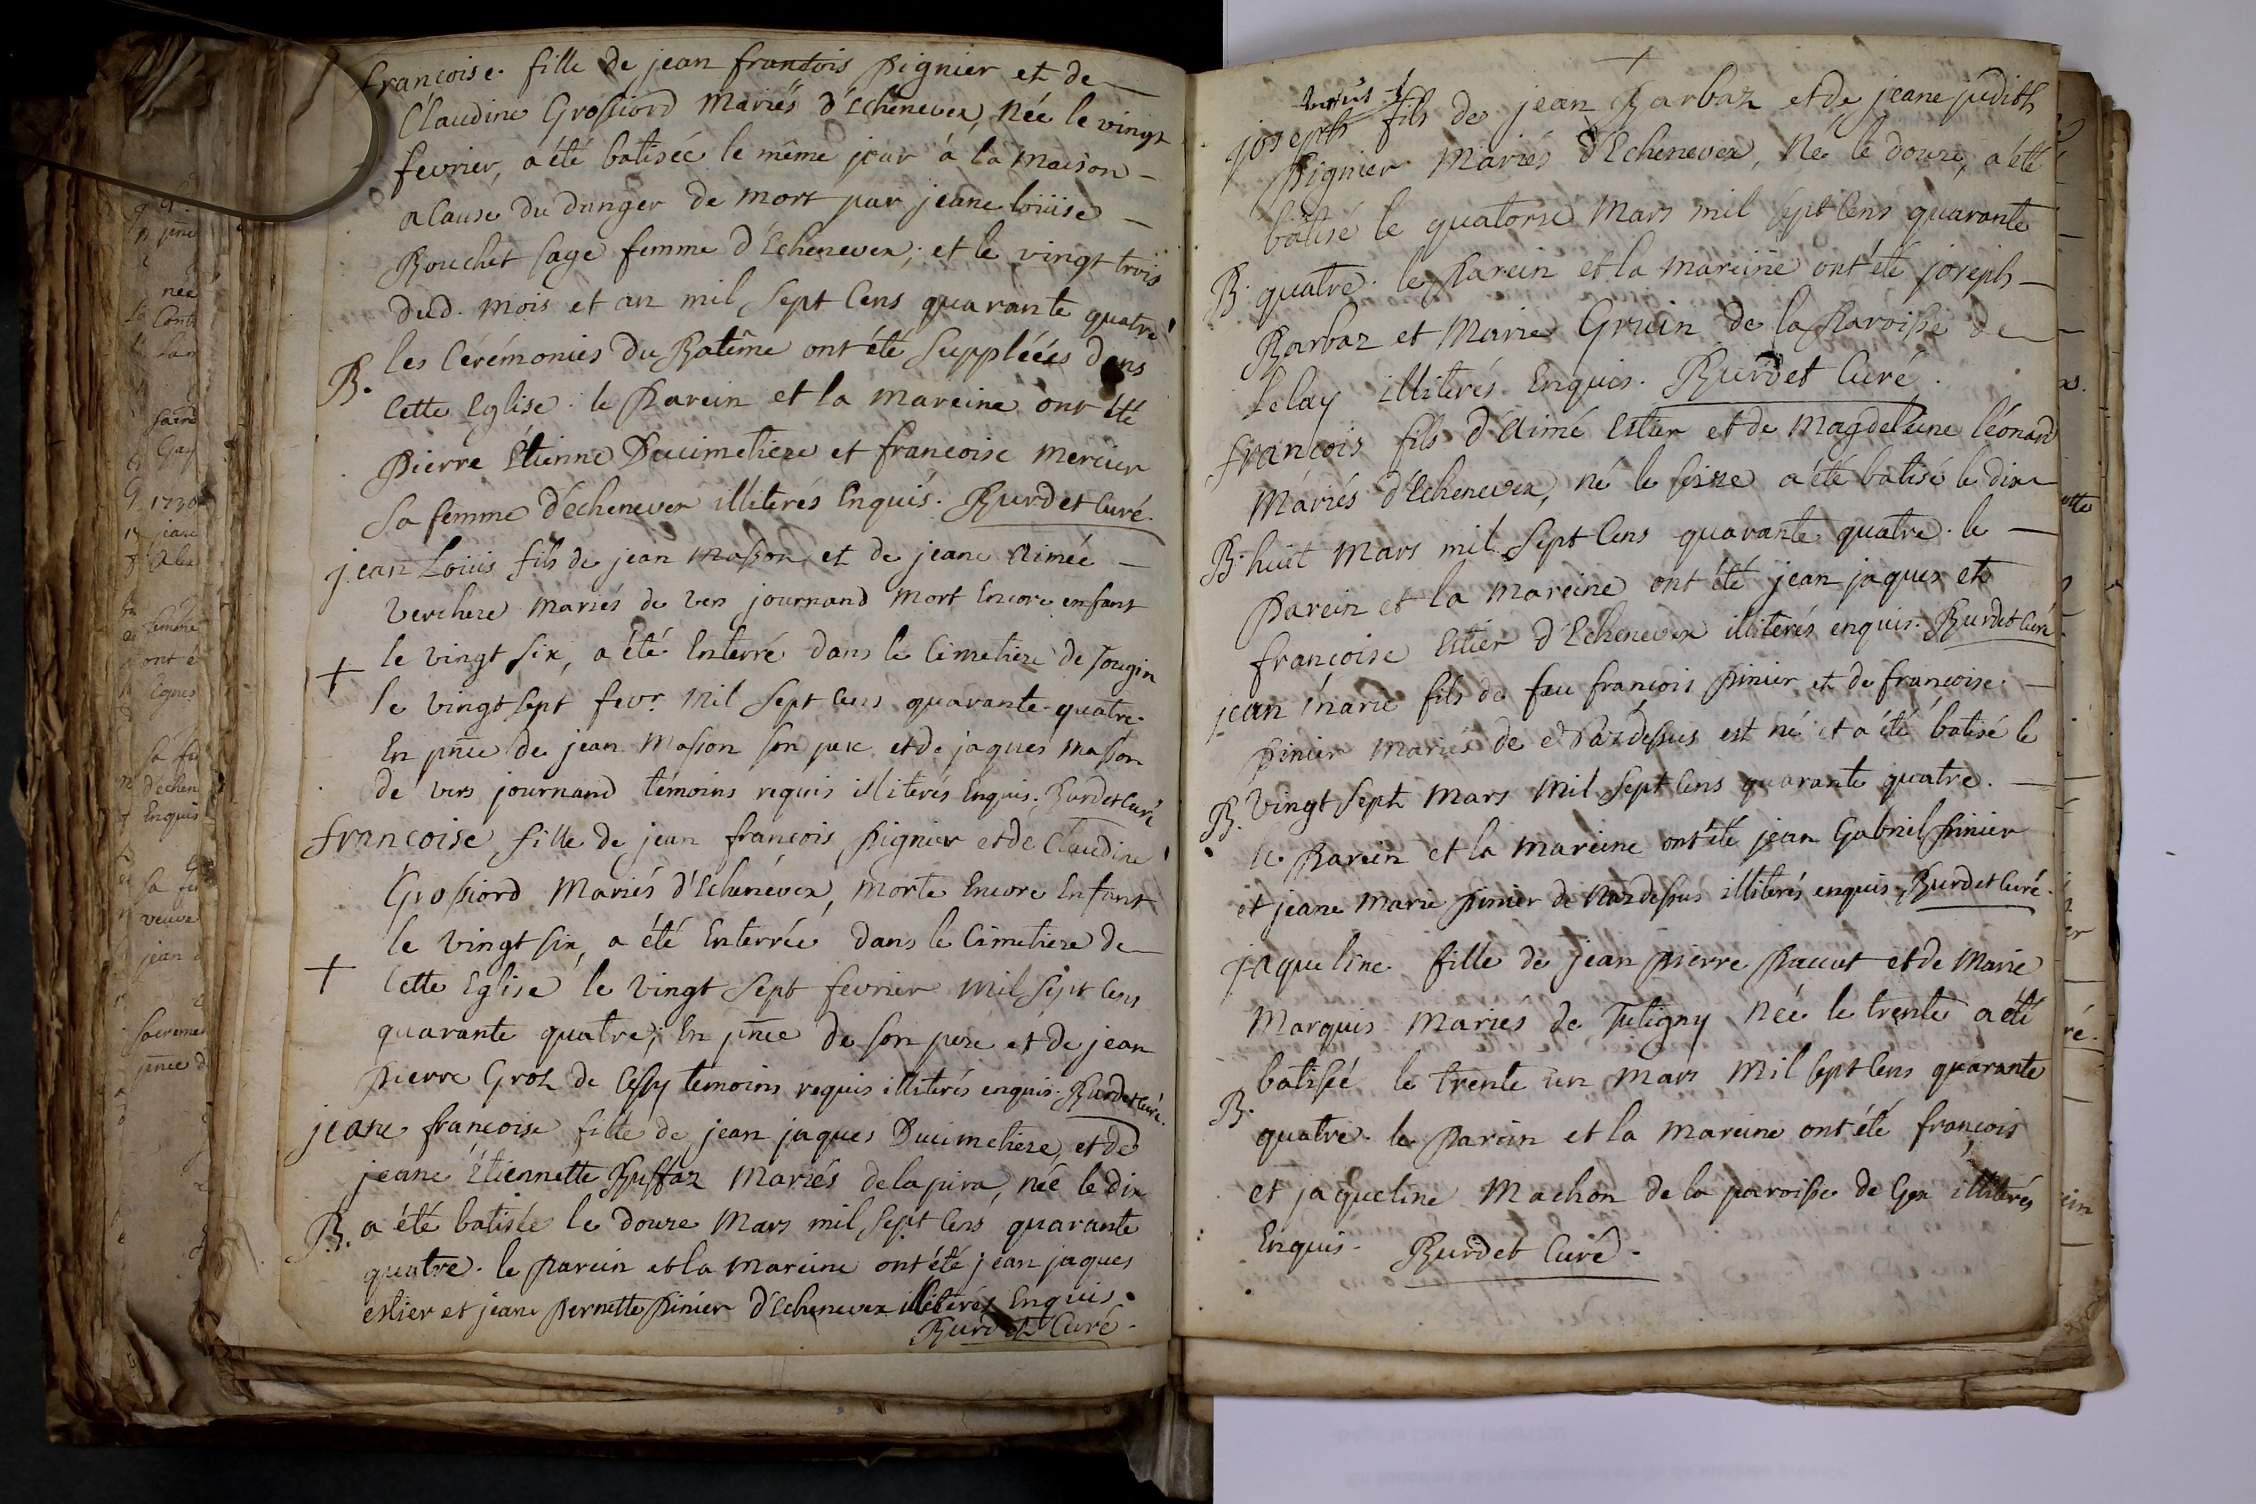 françoise. fille de jean francois Pignier et de
Claudine Grossiord Mariés d'Echenevex, Née le vingt
fevrier, a été batisée le même jour à la maison
a Cause du danger de mort par jeane loüise
Bouchet sage femme d'Echenevex; et le vingt trois
dud. mois et an mil sept Cens quarante quatre
les Cérémonies du Batême ont été Suppléées dans
B.
Cette Eglise. le Parein et la mareine ont été
Pierre Étienne Ducimetiere et francoise mercier
Sa femme d'échenevex illiterés Enquis. Burdet Curé.
jean Loüis fils de jean Masson et de jeane Aimée
Verchere Mariés de Vers journand Mort Encore enfant
le vingt six, a été Enterré dans le Cimetiere de Sougin
+
le vingt sept fevr. Mil sept Cens quarante quatre.
En pñce de jean Masson son pere et de jaques Masson
de vers journand témoins requis illiterés Enquis. Burdet Curé
françoise, fille de jean françois Pignier et de Claudine
Grossiord Mariés d'Echenévex, morte Encore Enfant
le vingt six, a été Enterrée dans le Cimetiere de
+
Cette Eglise le vingt sept fevrier mil sept Cens
quarante quatre; En pñce de son pere et de jean
Pierre Gros de Cessy temoins requis illiterés enquis. Burdet Curé.
jeane françoise fille de jean jaques Ducimetiere, et de
jeane Étiennette Ruffaz Mariés de la pira, née le dix
B. a été batisée le douze Mars mil sept Cens quarante
quatre. le parein et la mareine ont été jean jaques
estier et jeane Pernette Pinier d'Echenevex illiterés Enquis.
Burdet Curé.
+
joseph fils de jean Barbaz et de jeane judith
Pignier Mariés d'Echenevex, Né le douze, a été
batisé le quatorze Mars mil sept Cens quarante
B. quatre. le Parein et la mareine ont été joseph
Barbaz et Marie Gruin de la Paroisse de
Lelay illiterés Enquis. Burdet Curé.
François fils d'Aimé Estier et de Magdeleine léonard
Mariés d'Echenevex, né le seize a été batisé le dix
B. huit Mars mil Sept Cens quarante quatre. le
Parein et la mareine ont été jean jaques et
françoise Estier d'Echenevex illiterés enquis. Burdet Curé
jean Marie fils de feu françois Pinier et de françoise
Pinier Mariés de Nazdessus est né et a été batisé le
B. vingt sept Mars Mil Sept Cens quarante quatre.
le Parein et la mareine ont été jean Gabriel Pinier
et jeane Marie Pinier de Nazdessus illiterés enquis. Burdet Curé.
jaqueline fille de jean Pierre Paccut et de Marie
Marquis Mariés de Tutigny Née le trente a été
batisée le trente un Mars Mil sept Cens quarante
B.
quatre. le Parein et la mareine ont été françois
et jaqueline Machon de la paroisse de Gex illiterés
Enquis. Burdet Curé.